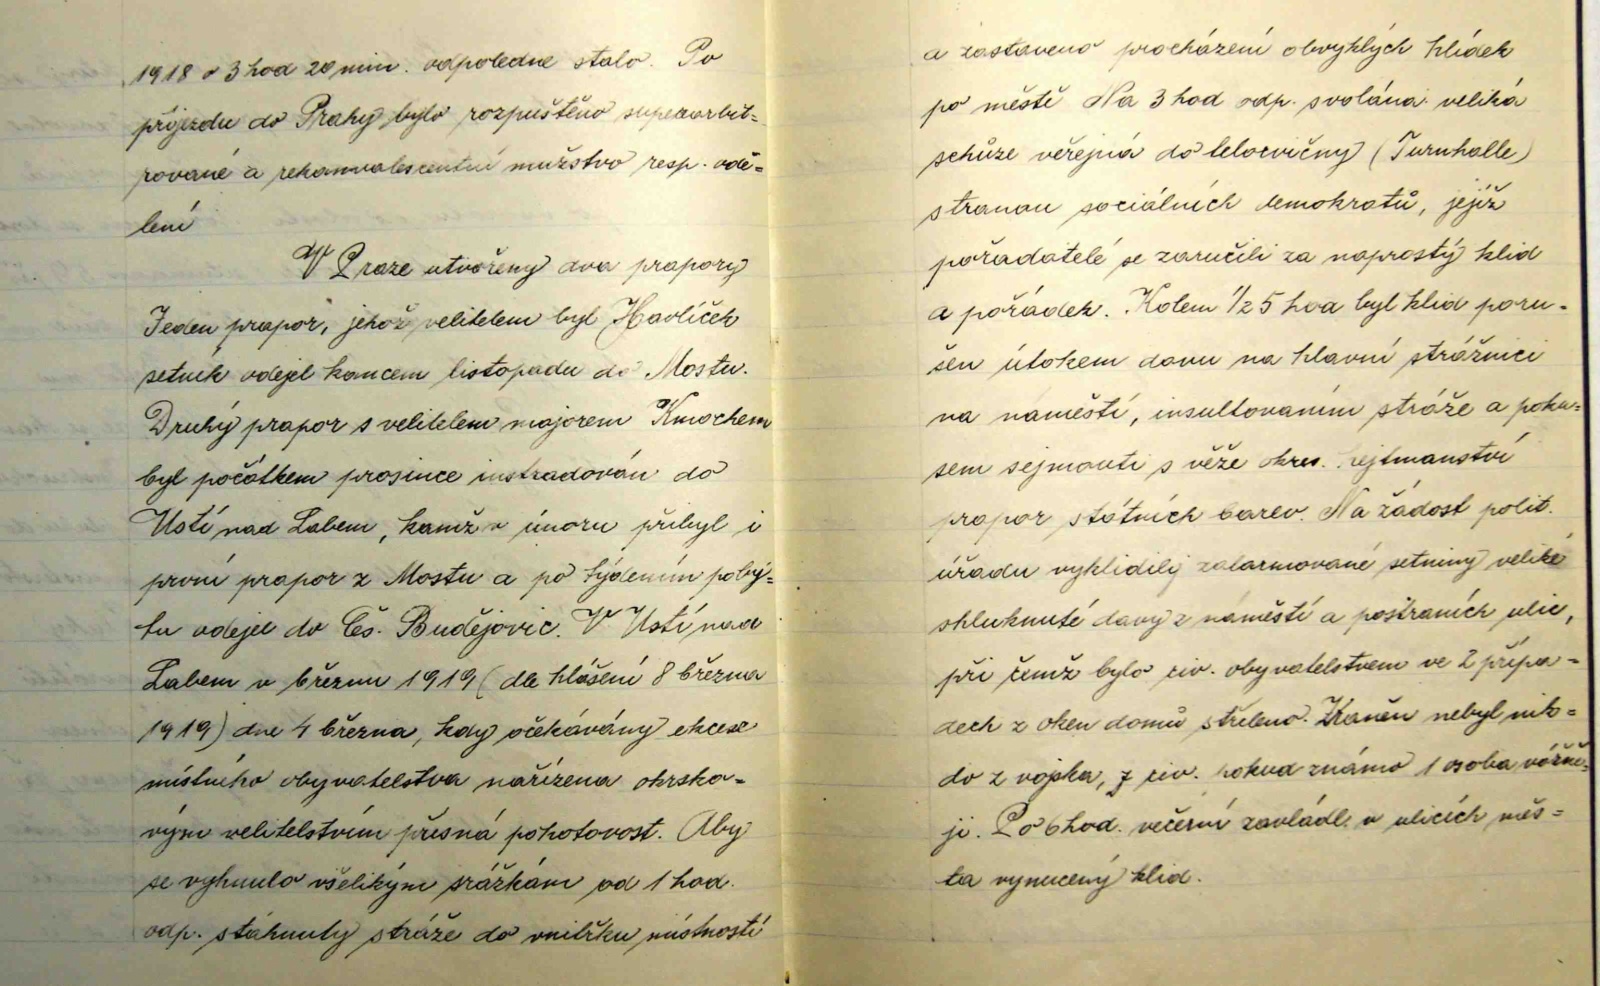 1918 o 3 hod 20 min. odpoledne stalo. Po
příjezdu do Prahy bylo rozpuštěno superarbit=
rované a rekonvalescentní mužstvo resp. odě=
lení
V Praze utvořeny dva prapory
Jeden prapor, jehož velitelem byl Havlíček
setník odejel koncem listopadu do Mostu.
Druhý prapor s velitelem majorem Kmochem
byl počátkem prosince instradován do
Ustí nad Labem, kamž v únoru přibyl i
první prapor z Mostu a po týdením poby=
tu odejel do Čes. Budějovic. V Ustí nad
Labem v březnu 1919 (dle hlášení 8 března
1919) dne 4 března, kdy očekávány excese
místního obyvatelstva nařízena okrsko=
vým velitelstvím přesná pohotovost. Aby
se vyhnulo všelikým srážkám od 1 hod.
odp. stáhnuty stráže do vnitřku místností
a zastaveno procházení obvyklých hlídek
po městě Na 3 hod odp. svolána veliká
schůze veřejná do tělocvičny (Turnhalle)
stranou sociálních demokratů, jejíž
pořadatelé se zaručili za naprostý klid
a pořádek. Kolem 1/2 5 hod byl klid poru=
šen útokem davu na hlavní strážnici
na náměstí, insultováním stráže a poku=
sem sejmouti s věže okres. hejtmanství
prapor státních barev. Na žádost polit.
úřadu vyklidily zalarmované setniny veliké
shluknuté davy z náměstí a postraních ulic,
při čemž bylo civ. obyvatelstvem ve 2 přípa=
dech z oken domů střeleno. Zraněn nebyl nik=
do z vojska, z civ. pokud známo 1 osoba vážně=
ji. Po 6 hod. večerní zavládl v ulicích měs=
ta vynucený klid.